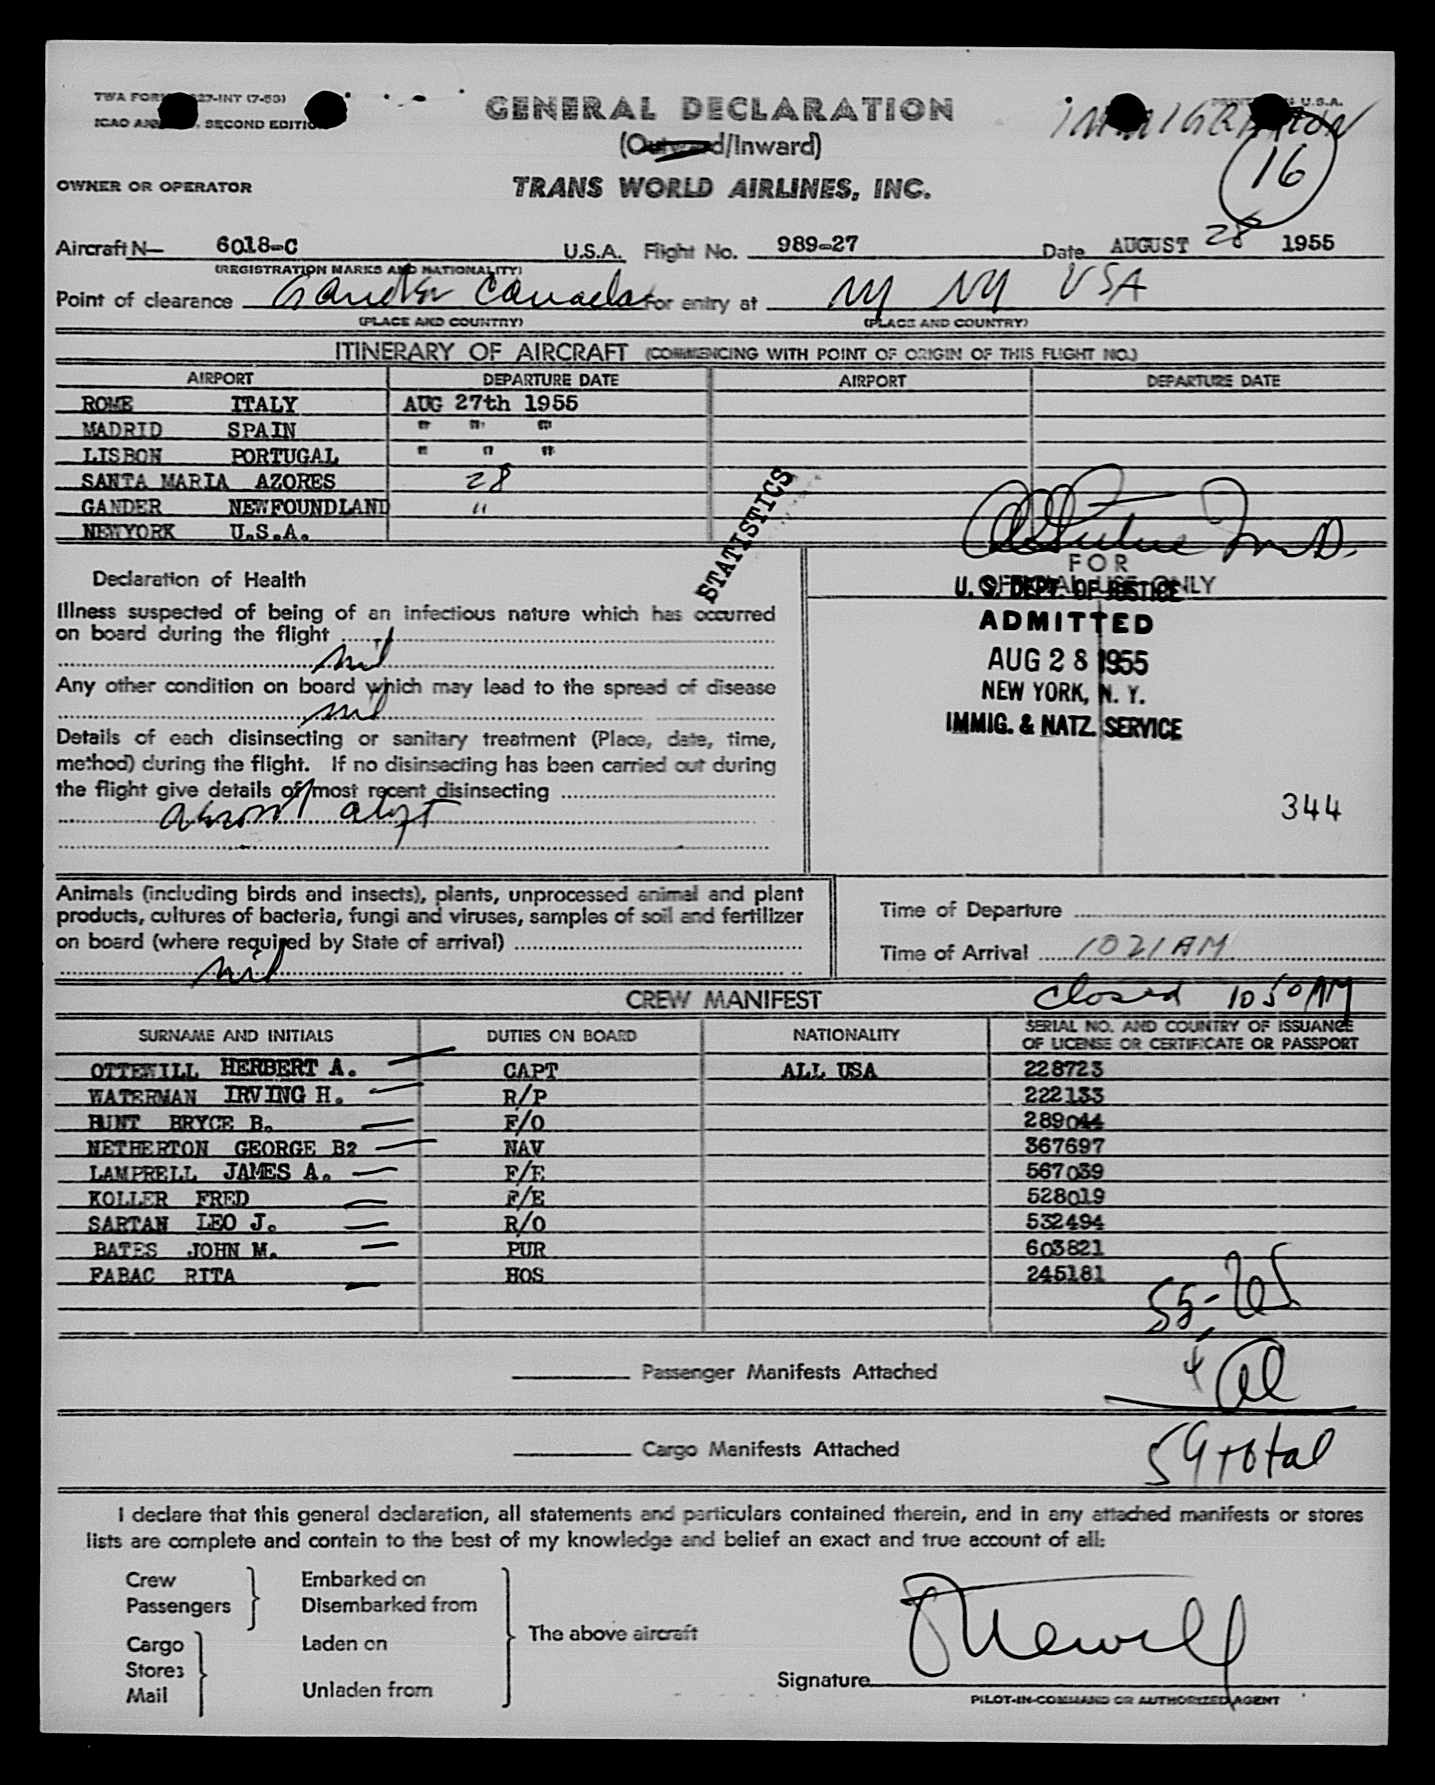 TWA FORM 27-INT (7-53)
PRINTED IN U.S.A.
ICAO SECOND EDITION
GENERAL DECLARATION
IMMIGRATION
(Outward/Inward)
16
OWNER OR OPERATOR TRANS WORLD AIRLINES, INC.
Aircraft N— 6018-C U.S.A. Flight No. 989-27 Date AUGUST 28 1955
(REGISTRATION MARKS AND NATIONALITY)
Point of clearance Gander Canada For entry at NY NY USA
(PLACE AND COUNTRY) (PLACE AND COUNTRY)
ITINERARY OF AIRCRAFT (COMMENCING WITH POINT OF ORIGIN OF THIS FLIGHT NO.)
AIRPORT DEPARTURE DATE AIRPORT DEPARTURE DATE
ROME ITALY AUG 27th 1955
MADRID SPAIN " " "
LISBON PORTUGAL " " "
SANTA MARIA AZORES 28
GANDER NEWFOUNDLAND "
NEWYORK U.S.A.
STATISTICS
M.D.
FOR
OFFICIAL USE ONLY
U. S. DEPT. OF JUSTICE
ADMITTED
AUG 28 1955
NEW YORK, N. Y.
IMMIG. & NATZ. SERVICE
344
Declaration of Health
Illness suspected of being of an infectious nature which has occurred
on board during the flight
nil
Any other condition on board which may lead to the spread of disease
nil
Details of each disinsecting or sanitary treatment (Place, date, time,
method) during the flight. If no disinsecting has been carried out during
the flight give details of most recent disinsecting
Animals (including birds and insects), plants, unprocessed animal and plant
products, cultures of bacteria, fungi and viruses, samples of soil and fertilizer
on board (where required by State of arrival)
nil
Time of Departure
Time of Arrival 1021 AM
closed 1050 AM
CREW MANIFEST
SURNAME AND INITIALS DUTIES ON BOARD NATIONALITY SERIAL NO. AND COUNTRY OF ISSUANCE
OF LICENSE OR CERTIFICATE OR PASSPORT
OTTEWILL HERBERT A. CAPT ALL USA 228723
WATERMAN IRVING H. R/P 222133
HUNT BRYCE B. F/O 289044
NETHERTON GEORGE B? NAV 367697
LAMPRELL JAMES A. F/E 567039
KOLLER FRED F/E 528019
SARTAN LEO J. R/O 532494
BATES JOHN M. PUR 603821
FABAC RITA HOS 245181
55-
4
Passenger Manifests Attached
59 total
Cargo Manifests Attached
I declare that this general declaration, all statements and particulars contained therein, and in any attached manifests or stores
lists are complete and contain to the best of my knowledge and belief an exact and true account of all:
Crew Embarked on
Passengers Disembarked from
The above aircraft
Cargo Laden on
Stores
Mail Unladen from
Signature Ottewill
PILOT-IN-COMMAND OR AUTHORIZED AGENT